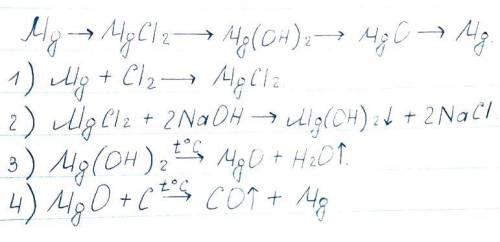 Mg → MgCl₂ → Mg(OH)₂ → MgO → Mg.
1) Mg + Cl₂ → MgCl₂.
2) MgCl₂ + 2NaOH → Mg(OH)₂↓ + 2NaCl
3) Mg(OH)₂ t°C→ MgO + H₂O↑.
4) MgO + C t°C→ CO↑ + Mg